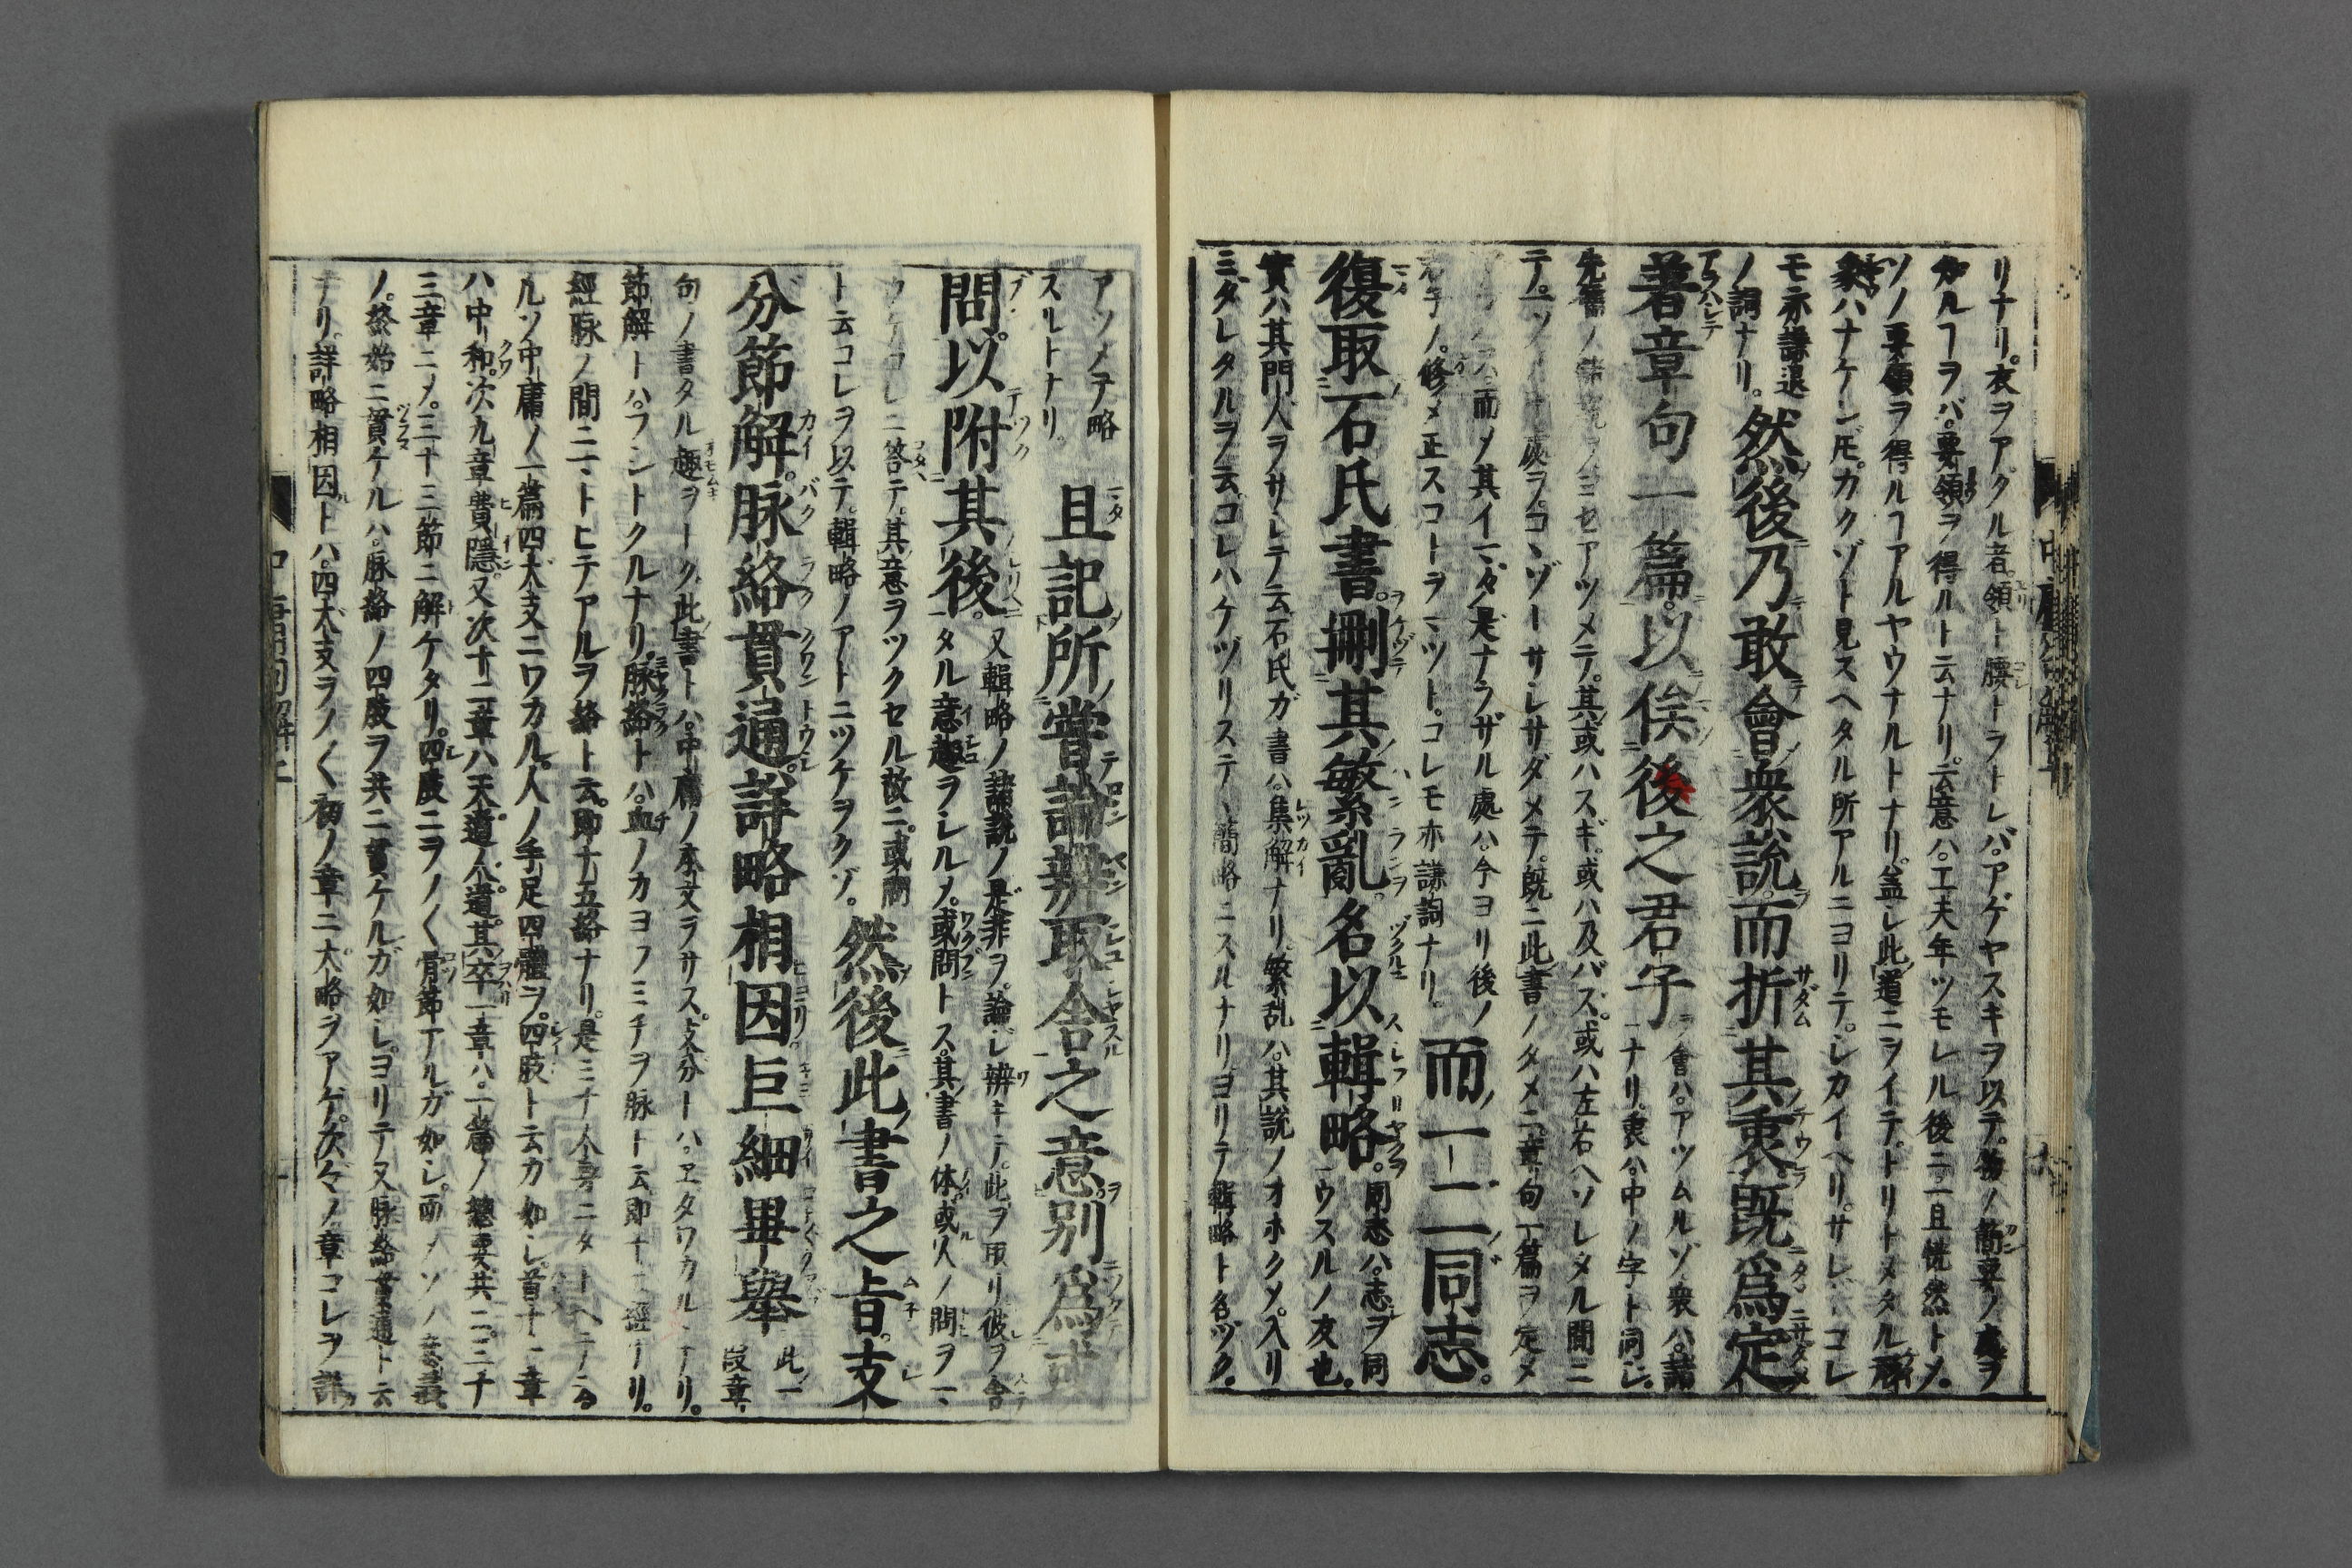 リナリ。衣ヲアクル者。領ト腰トラトレバ。アゲヤスキヲ以テ。物ノ簡要ノ處ヲ
カルヿヲバ。要領ヲ得ルト云ナリ。云意ハ。工夫年ツモレル後ニ。一旦恍然トメ。
ソノ要領ヲ得ルヿアルヤウナルトナリ。蓋シ此道ニヲイテ。トリトメタル
ハナケンモ。カクゾト見スヘタル所アルニヨリテ。シカイヘリ。サレバコレ
モ亦謙退
ノ詞ナリ。然後乃敢會衆說而折其衷。既爲定
著章句一篇。以俟後之君子
會ハ。アツムルゾ。衆ハ。諸
ナリ。衷ハ。中ノ字ト同シ。
先儒ノ ヨセアツメテ。其或ハスギ。或ハ及バズ。或ハ左右ヘソレタル間ニ
テ。一ツ 處ヲ。コヽゾーサシサダメテ。既ニ此書ノタメニ。章句一篇ヲ定メ
而ノ其イマダ是ナラザル處ハ。今ヨリ後ノ
君子ノ。修メ正スコトヲマツト。コレモ亦謙詞ナリ。 而一二同志。
復取石氏書。刪其繁亂。名以輯略。
同志ハ。志ヲ同
ウスルノ友也。
實ハ其門人ヲサシテ云。石氏ガ書ハ。集解ナリ。繁乱ハ。其說ノオホクメ。入リ
ミダレタルヲ云。コレハケヅリステヽ簡略ニスルナリ。ヨリテ輯略ト名ヅク。
アツメテ略
スルトナリ。
且記所嘗論辨取舍之意。別爲或
問。以附其後。
又輯略ノ諸說ノ是非ヲ。論シ辨キテ。此ヲ取リ彼ヲ舍
タル意趣ヲシルメ。或問トス。其書ノ体。或人ノ問ヲ一
ウケコレニ答テ。其意ヲツクセル故ニ。或問
ト云コレヲ以テ。輯略ノアトニツケヲクゾ。
然後此書之旨。支
分節解。脉絡貫通。詳略相因。巨細畢舉
此一
段章
句ノ書タル趣ヲトク。此書トハ。中庸ノ本文ヲサス。支分トハ。ヱダワカルヽナリ。
節解トハ。フシトクルナリ。脉絡トハ。血ノカヨフミチヲ脉ト云。即十二經ナリ。
經脉ノ間ニ一トヒテアルヲ絡ト云。即十五絡ナリ。是ミナ人身ニタトヘテノ
ルゾ。中庸ノ一篇四大支ニワカル。人ノ手足四體ヲ。四肢ト云ガ如シ。首十一章
ハ中和。次九章費隱。又次十二章ハ天道人道。其卒一章ハ。一篇ノ總要。共ニ三十
三章ニメ。三十三節ニ解ケタリ。四肢ニヲノく骨節アルガ如シ。而メソノ意義
ノ。終始ニ貫ケルハ。脉絡ノ四肢ヲ共ニ貫ケルガ如シ。ヨリテ又脉絡貫通ト云
ナリ。詳略相因トハ。四大支ヲノく初ノ章ニ大略ヲアゲ。次々ノ章コレヲ詳